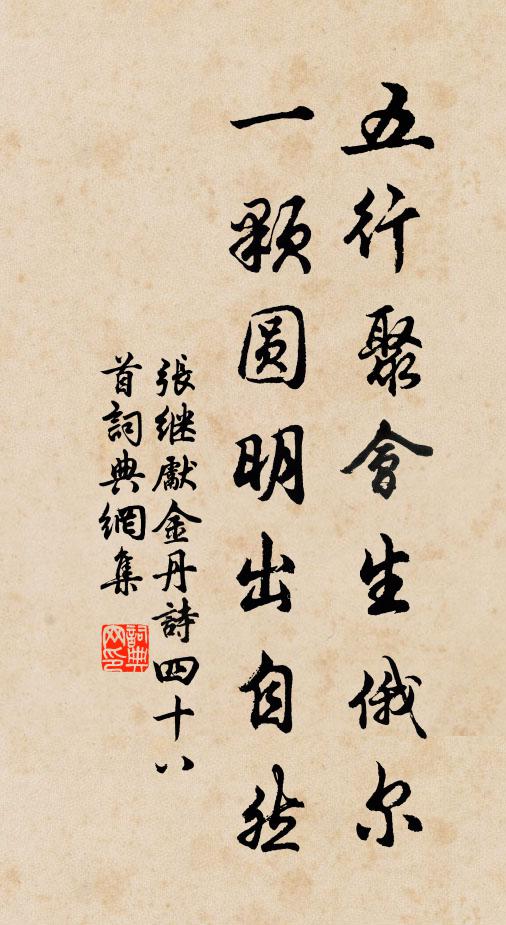 五行聚會生俄尔
一顆圆明出自然
張继獻金丹詩四十八
首詞典網集
詞典
网印